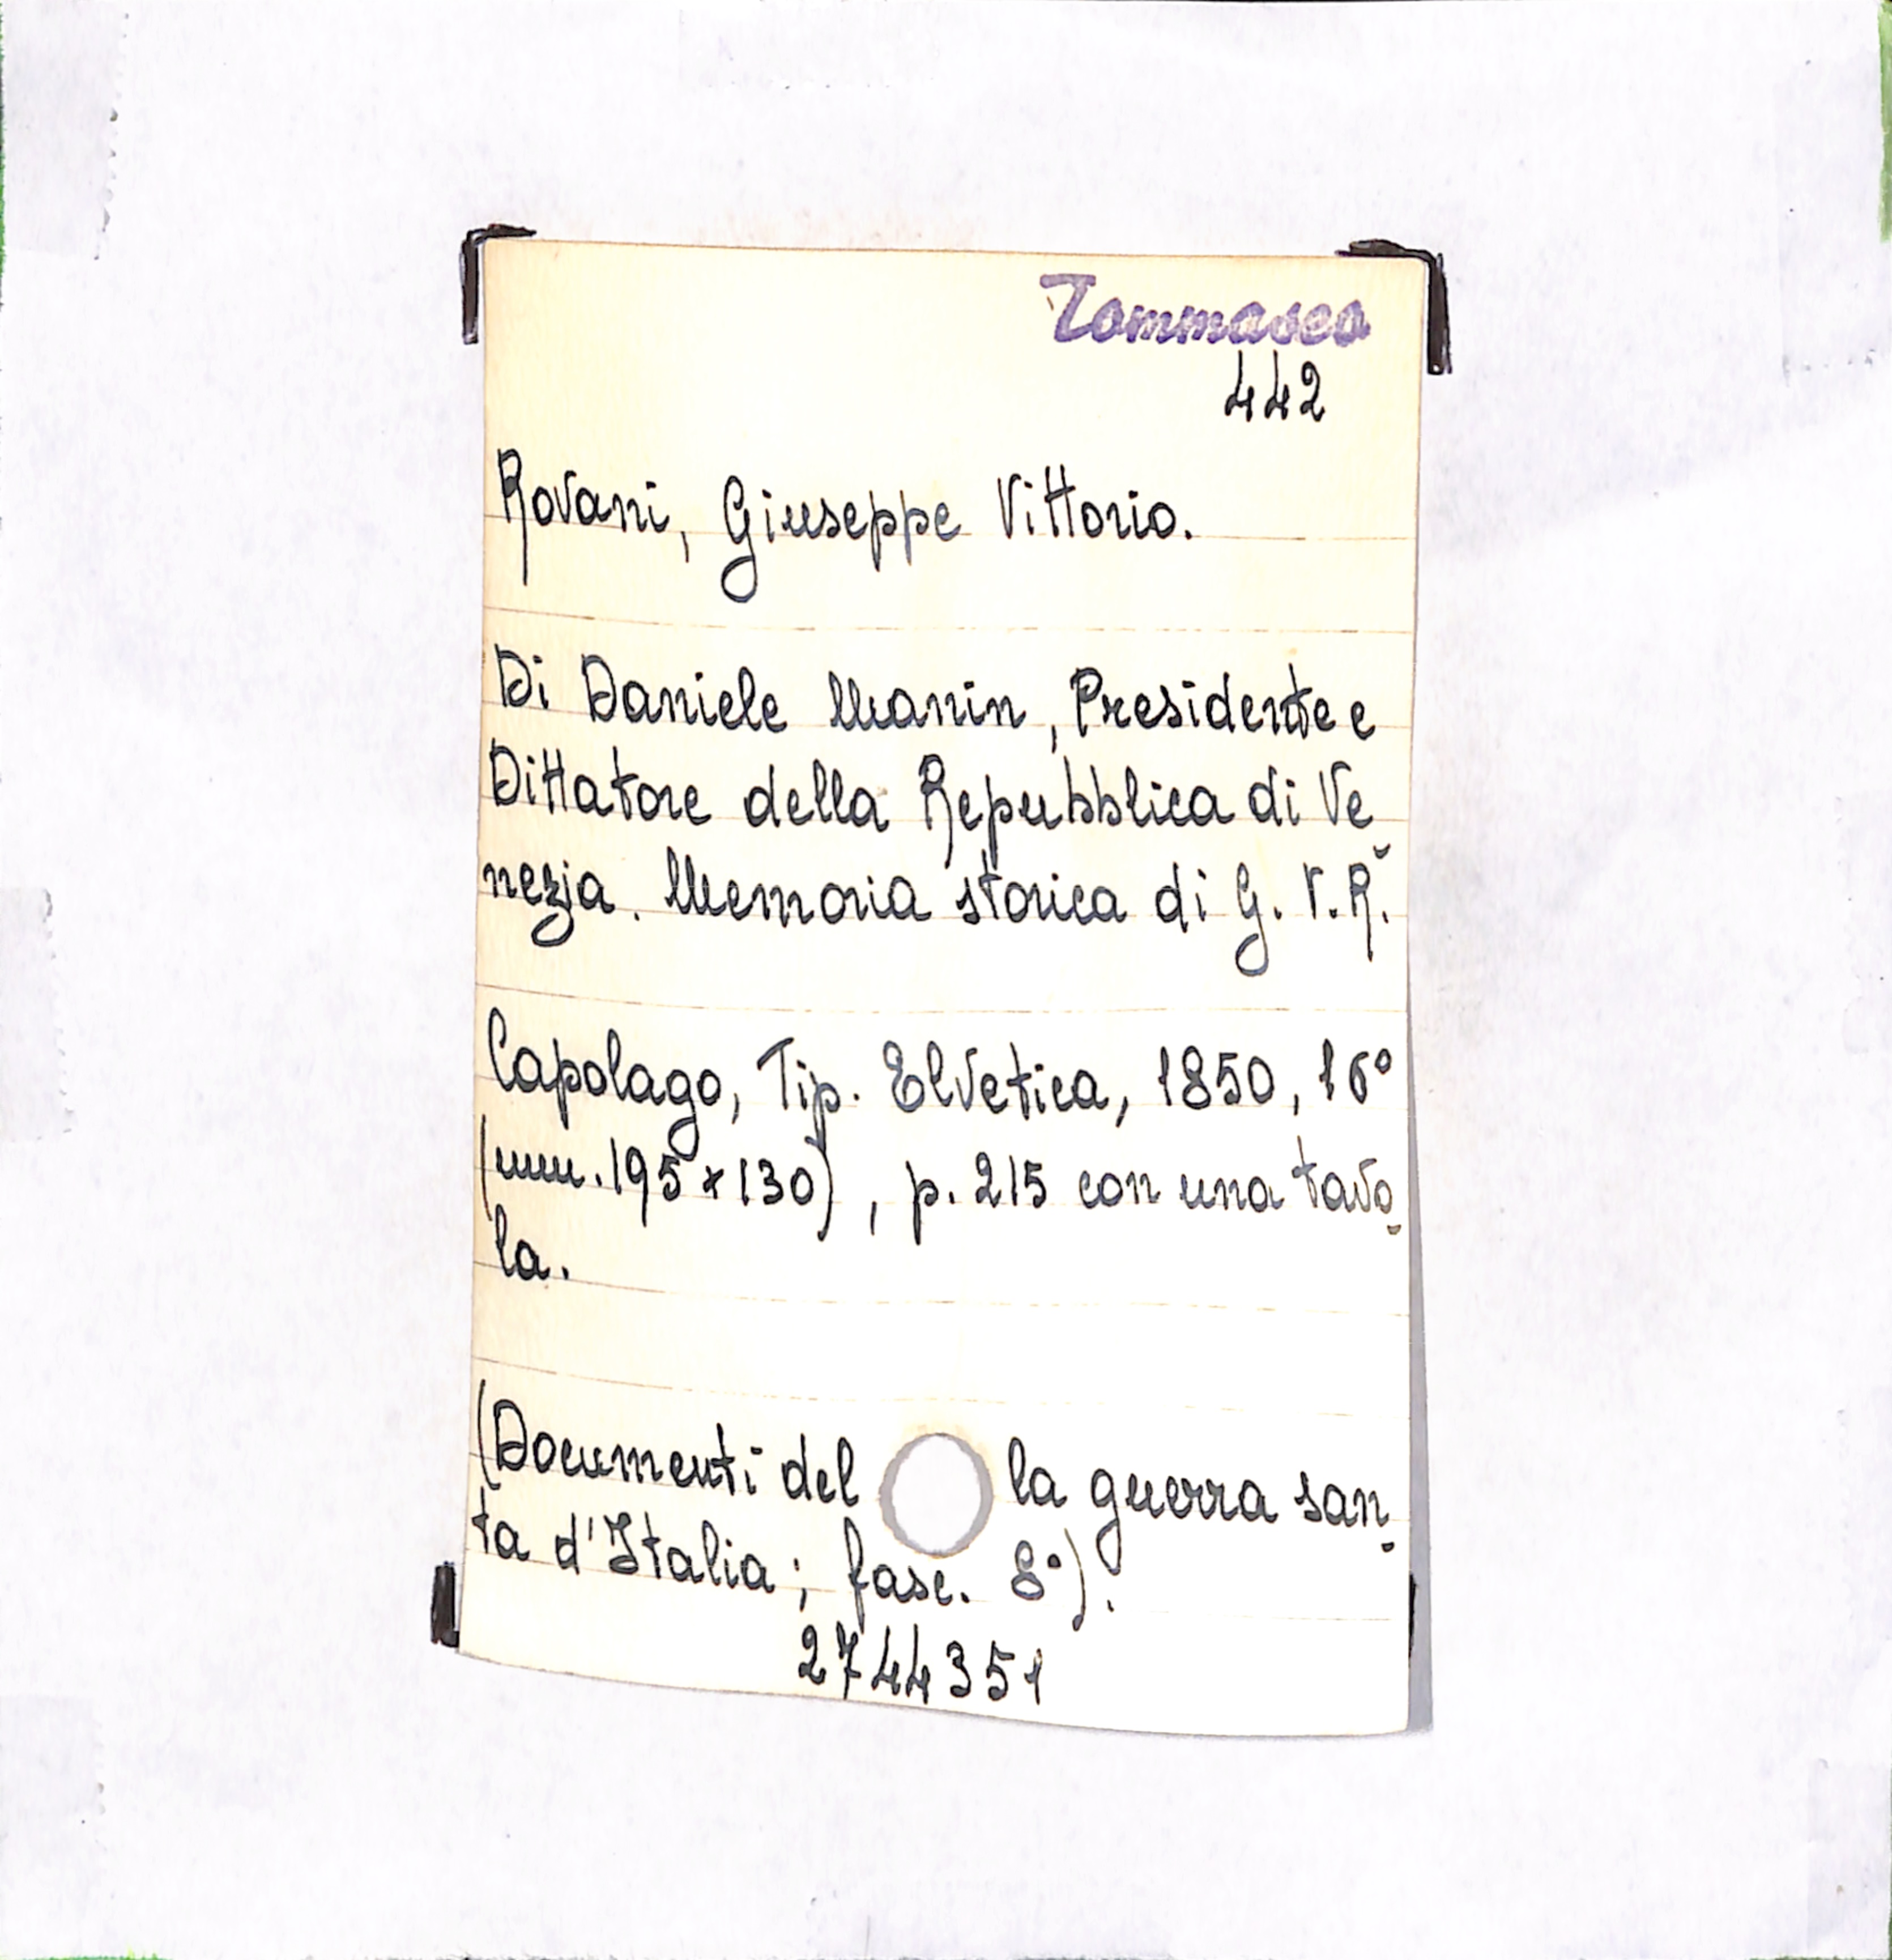 Tommaseo
442
Rovani, Giuseppe Vittorio.
Di Daniele Manin, Presidente e
Dittatore della Repubblica di Ve
nezia. Memoria storica di G. V. R.
Capolago, Tip. Elvetica, 1850, 16°
(mm. 195 x 130), p. 215 con una tavo-
la.
(Documenti del la guerra san-
ta d'Italia; fasc. 8°).
2744351